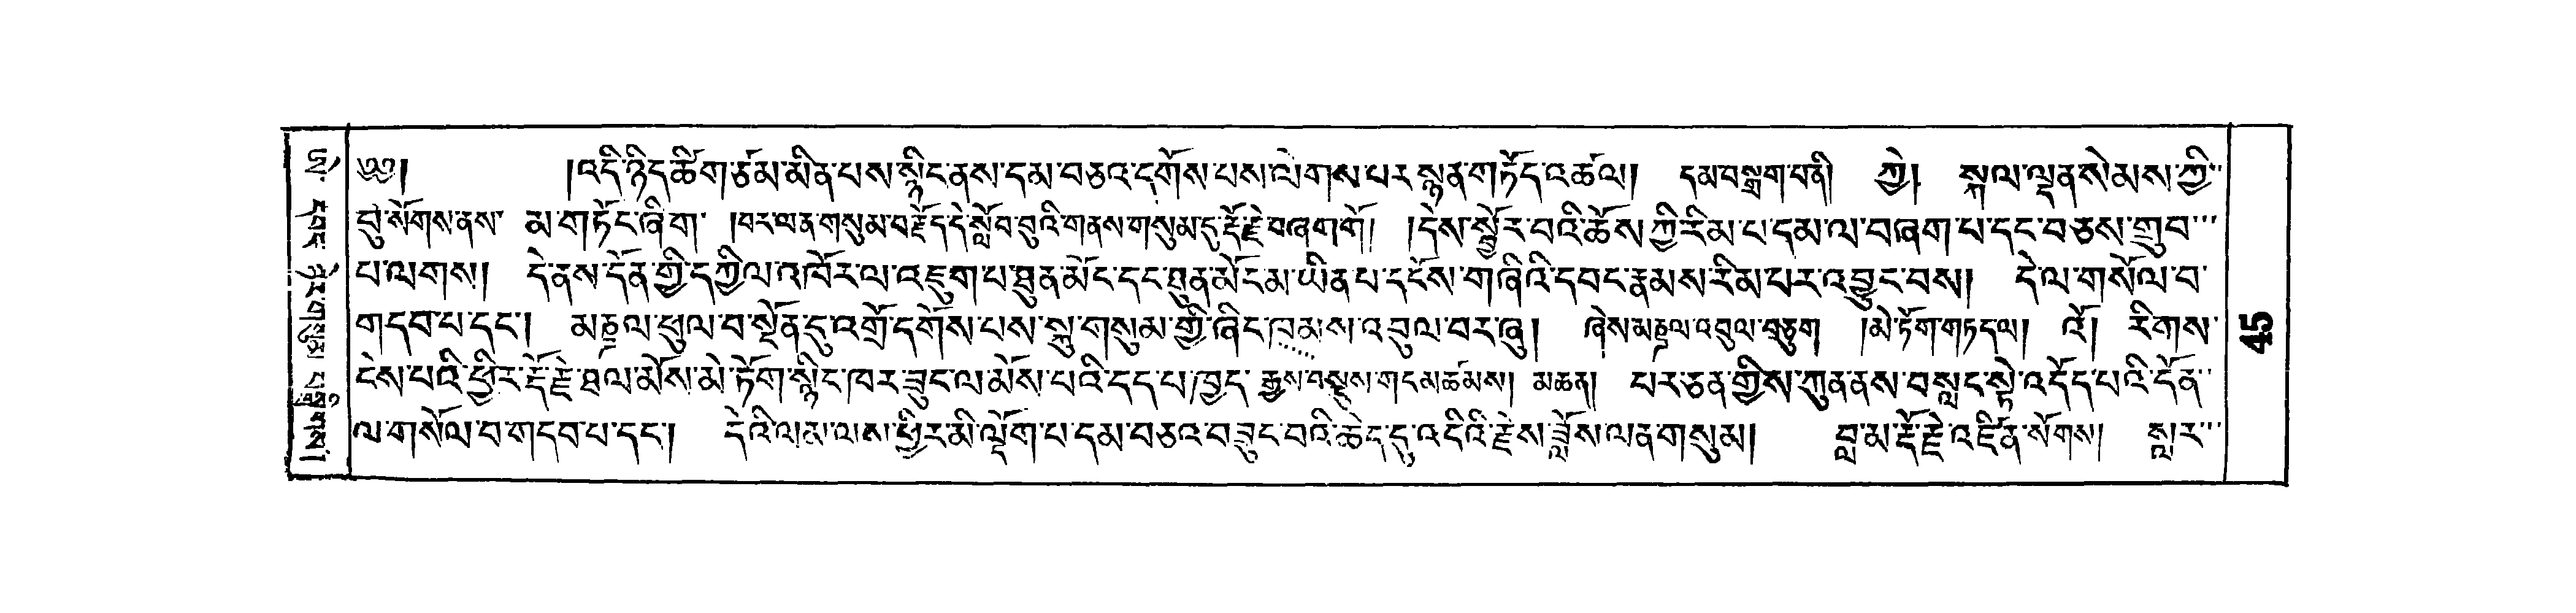 ༄༅། །འདི་ཉིད་ཚིག་ཙམ་མིན་པས་སྙིང་ནས་དམ་བཅའ་དགོས་པས་ལེགས་པར་སྙན་གཏོད་འཚལ། དམ་བསྒྲག་པནི། ཀྱེ། སྐལ་ལྡན་སེམས་ཀྱི་
བུ་སོགས་ནས་ མ་གཏོང་ཞིག །བར་ལན་གསུམ་བརྗོད་དེ་སློབ་བུའི་གནས་གསུམ་དུ་རྡོ་རྗེ་བཞག་གོ། །དེས་སྦྱོར་བའི་ཆོས་ཀྱི་རིམ་པ་དམ་ལ་བཞག་པ་དང་བཅས་གྲུབ་
པ་ལགས། དེ་ནས་དོན་གྱི་དཀྱིལ་འཁོར་ལ་འཇུག་པ་ཐུན་མོང་དང་ཐུན་མོང་མ་ཡིན་པ་དངོས་གཞིའི་དབང་རྣམས་རིམ་པར་འབྱུང་བས། དེ་ལ་གསོལ་བ་
གདབ་པ་དང་། མཎྜལ་ཕུལ་བ་སྔོན་དུ་འགྲོ་དགོས་པས་སྐུ་གསུམ་གྱི་ཞིང་ཁམས་འབུལ་བར་ཞུ། ཞེས་མཎྜལ་འབུལ་བཅུག །མེ་ཏོག་གཏད་ལ། འོ། རིགས་
ངེས་པའི་ཕྱིར་རྡོ་རྗེ་ཐལ་མོས་མེ་ཏོག་སྙིང་ཁར་ཟུང་ལ་མོས་པའི་དད་པ་ཁྱད་ རྒྱས་བསྡུས་གདམཚམས། མཆན། པར་ཅན་གྱིས་ཀུན་ནས་བསླང་སྟེ་འདོད་པའི་དོན་
ལ་གསོལ་བ་གདབ་པ་དང་། དེའི་ལམ་ལས་ཕྱིར་མི་ལྡོག་པ་དམ་བཅའ་བཟུང་བའི་ཆེད་དུ་འདིའི་རྗེས་ཟློས་ལན་གསུམ། བླ་མ་རྡོ་རྗེ་འཛིན་སོགས། སླར་